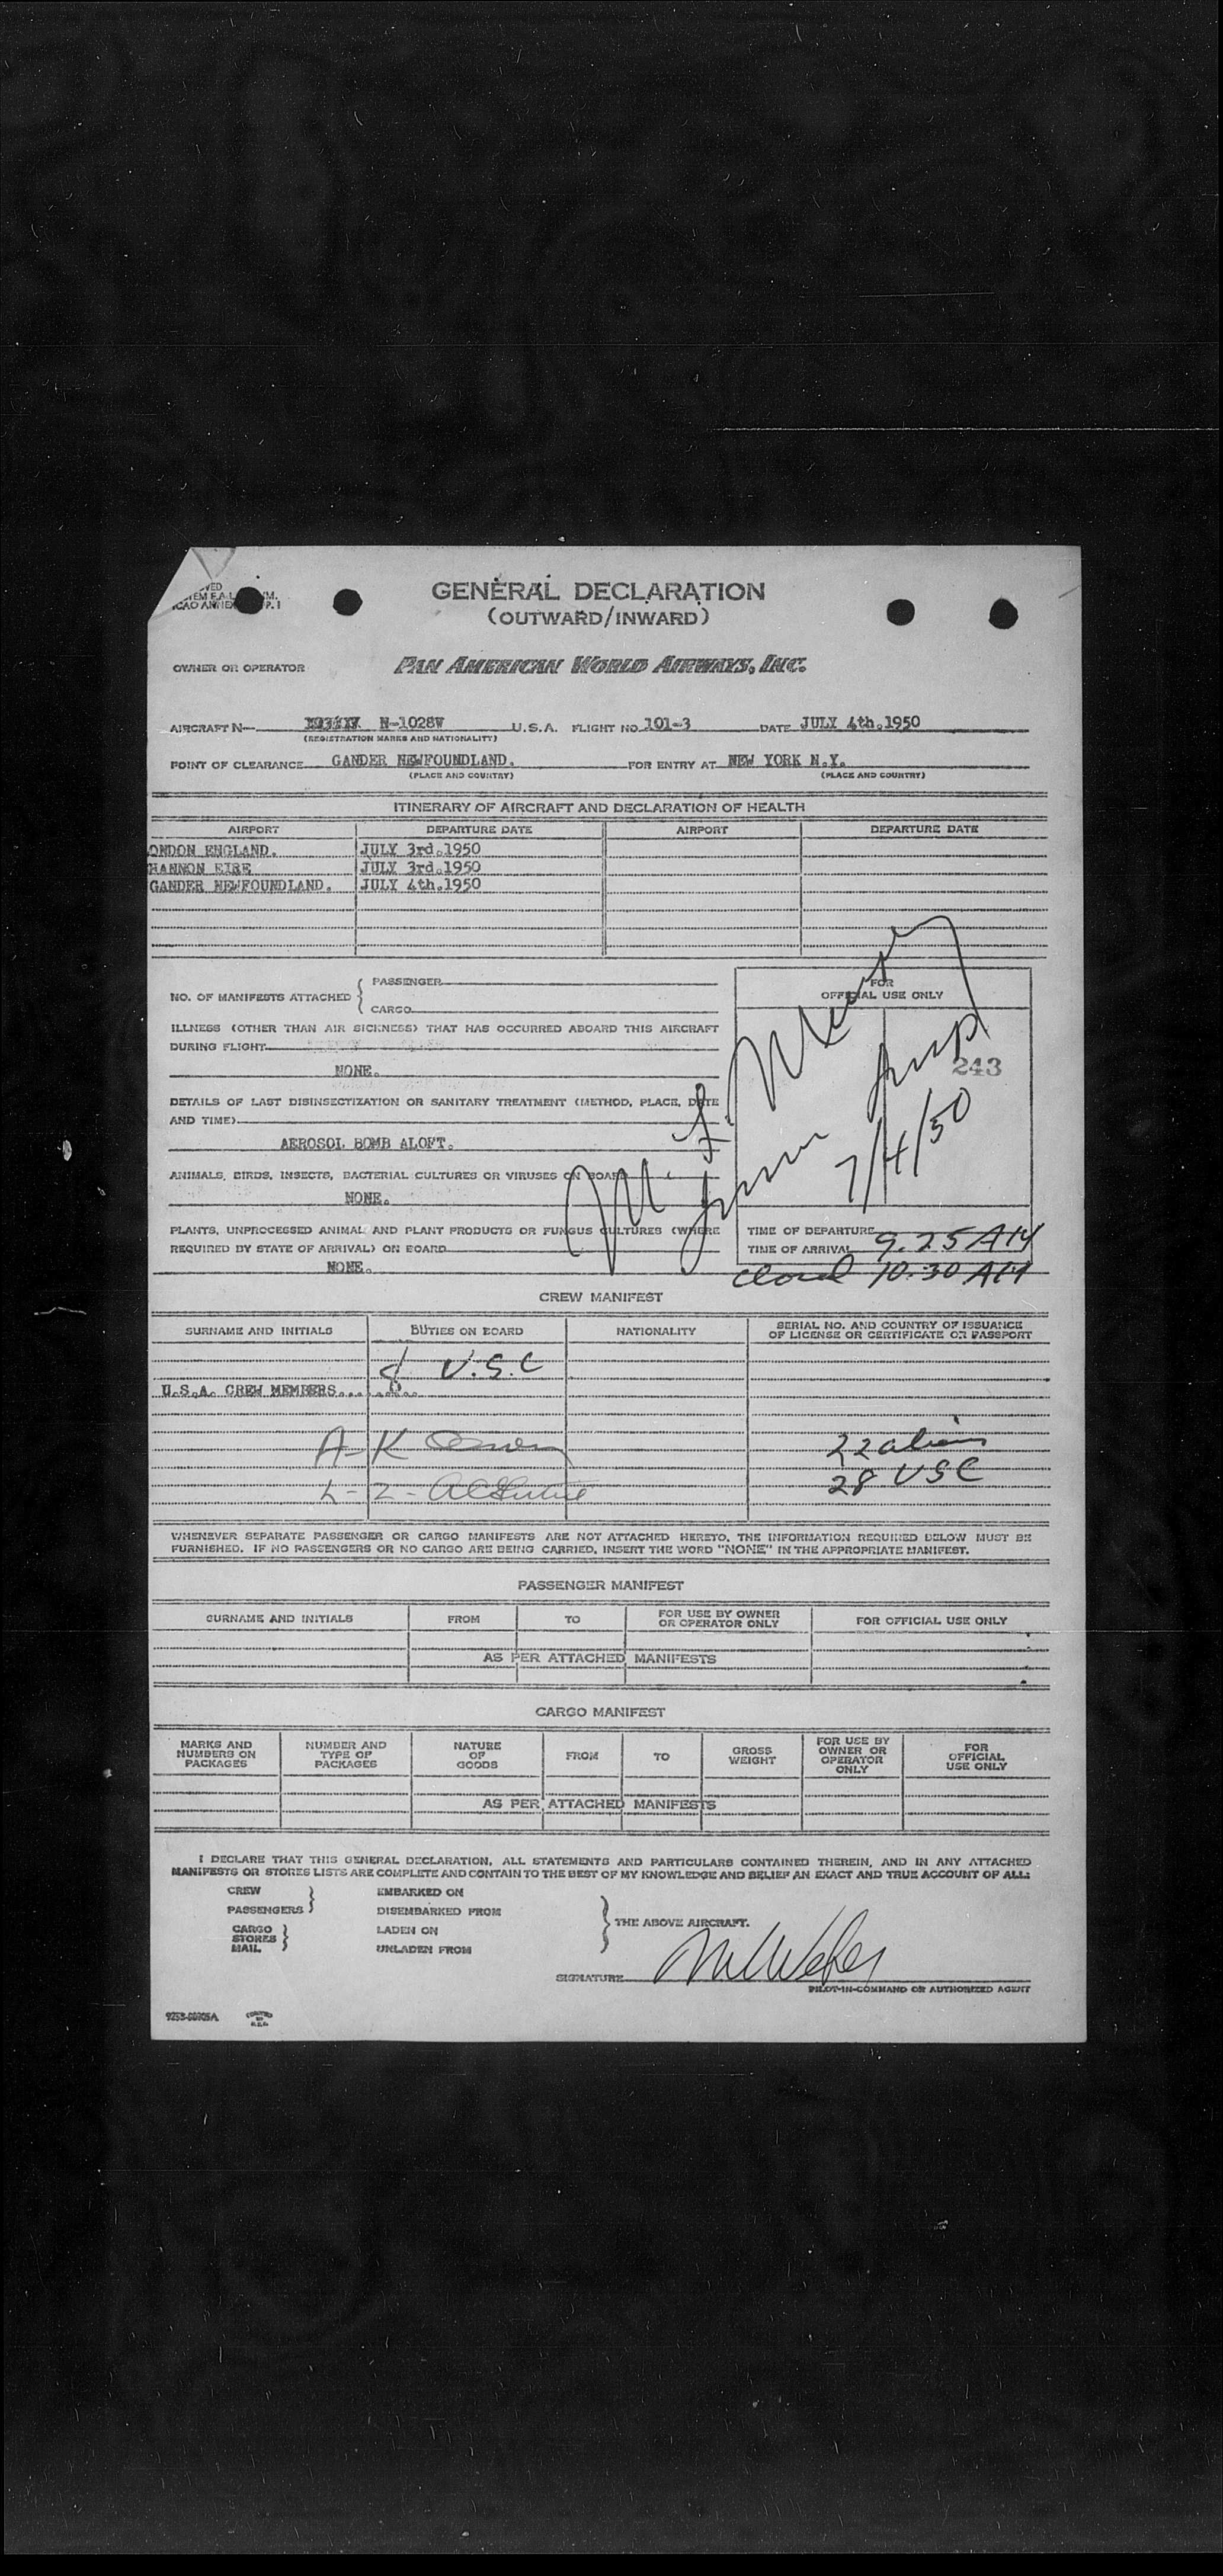 GENERAL DECLARATION
(OUTWARD/INWARD)
OWNER OR OPERATOR PAN AMERICAN WORLD AIRWAYS, INC.
AIRCRAFT N- N-1028V U.S.A. FLIGHT NO. 101-3 DATE JULY 4th.1950
(REGISTRATION MARKS AND NATIONALITY)
POINT OF CLEARANCE GANDER NEWFOUNDLAND. FOR ENTRY AT NEW YORK N.Y.
(PLACE AND COUNTRY) (PLACE AND COUNTRY)
ITINERARY OF AIRCRAFT AND DECLARATION OF HEALTH
AIRPORT DEPARTURE DATE AIRPORT DEPARTURE DATE
ONDON ENGLAND. JULY 3rd.1950
HANNON EIRE JULY 3rd.1950
GANDER NEWFOUNDLAND. JULY 4th.1950
NO. OF MANIFESTS ATTACHED { PASSENGER
CARGO
FOR
OFFICIAL USE ONLY
243
7/4/50
ILLNESS (OTHER THAN AIR SICKNESS) THAT HAS OCCURRED ABOARD THIS AIRCRAFT
DURING FLIGHT
NONE.
DETAILS OF LAST DISINSECTIZATION OR SANITARY TREATMENT (METHOD, PLACE, DATE
AND TIME)
AEROSOL BOMB ALOFT.
ANIMALS, BIRDS, INSECTS, BACTERIAL CULTURES OR VIRUSES ON BOARD
NONE.
PLANTS, UNPROCESSED ANIMAL AND PLANT PRODUCTS OR FUNGUS CULTURES (WHERE
REQUIRED BY STATE OF ARRIVAL) ON BOARD
NONE.
TIME OF DEPARTURE
TIME OF ARRIVAL 9.25 AM
10.30 AM
CREW MANIFEST
SURNAME AND INITIALS DUTIES ON BOARD NATIONALITY SERIAL NO. AND COUNTRY OF ISSUANCE
OF LICENSE OR CERTIFICATE OR PASSPORT
8 U.S.C
U.S.A. CREW MEMBERS.... ..8..
22 aliens
28 USC
WHENEVER SEPARATE PASSENGER OR CARGO MANIFESTS ARE NOT ATTACHED HERETO, THE INFORMATION REQUIRED BELOW MUST BE
FURNISHED. IF NO PASSENGERS OR NO CARGO ARE BEING CARRIED, INSERT THE WORD "NONE" IN THE APPROPRIATE MANIFEST.
PASSENGER MANIFEST
SURNAME AND INITIALS FROM TO FOR USE BY OWNER
OR OPERATOR ONLY FOR OFFICIAL USE ONLY
AS PER ATTACHED MANIFESTS
CARGO MANIFEST
MARKS AND
NUMBERS ON
PACKAGES NUMBER AND
TYPE OF
PACKAGES NATURE
OF
GOODS FROM TO GROSS
WEIGHT FOR USE BY
OWNER OR
OPERATOR
ONLY FOR
OFFICIAL
USE ONLY
AS PER ATTACHED MANIFESTS
I DECLARE THAT THIS GENERAL DECLARATION, ALL STATEMENTS AND PARTICULARS CONTAINED THEREIN, AND IN ANY ATTACHED
MANIFESTS OR STORES LISTS ARE COMPLETE AND CONTAIN TO THE BEST OF MY KNOWLEDGE AND BELIEF AN EXACT AND TRUE ACCOUNT OF ALL:
CREW EMBARKED ON
PASSENGERS DISEMBARKED FROM
CARGO LADEN ON
STORES
MAIL UNLADEN FROM
THE ABOVE AIRCRAFT.
SIGNATURE
PILOT-IN-COMMAND OR AUTHORIZED AGENT